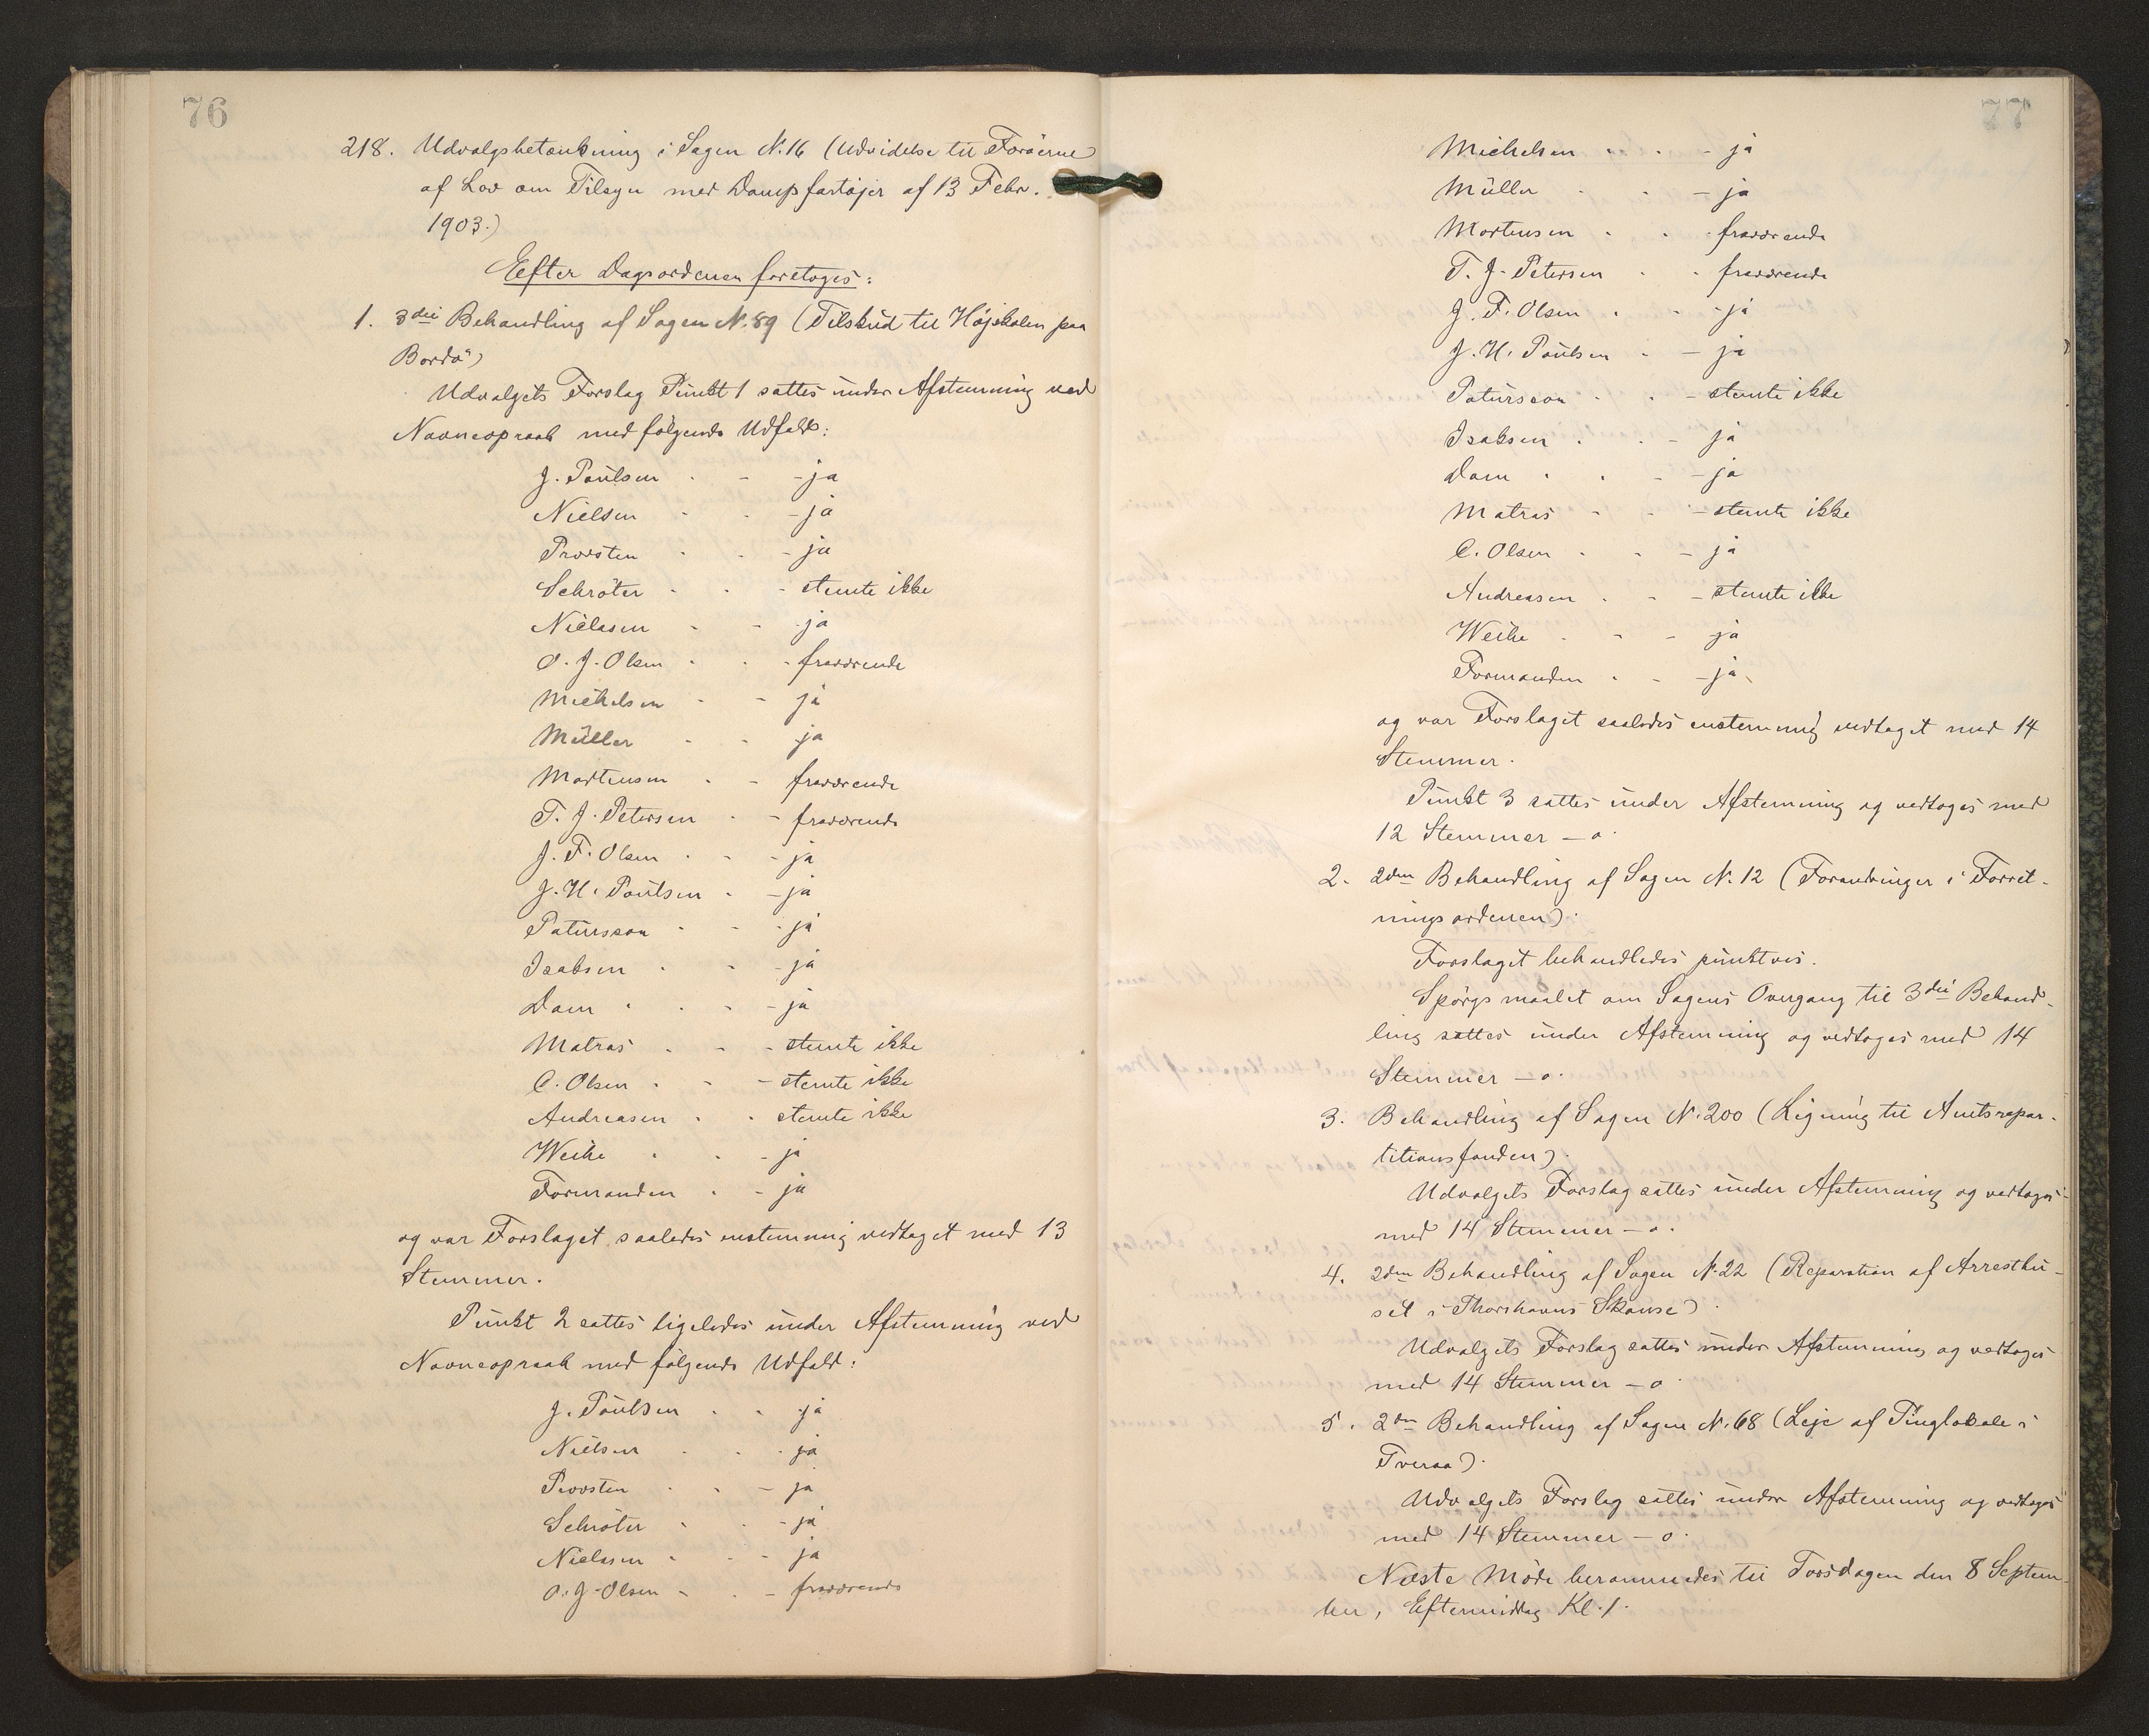 76
218. Udvalgsbetænkning i Sagen N. 16 (Udvidelse til Færøerne
af Lov om Tilsyn med Dampfartøjer af 13 Febr.
1903.)
Efter Dagsordenen foretoges:
1. 3die Behandling af Sagen N. 89 (Tilskud til Højskolen paa
Bordø)
Udvalgets Forslag Punkt 1 sattes under Afstemning ved
Navneopraab med følgende Udfald:
J. Poulsen - - - ja
Nielsen - - - ja
Provsten - - - ja
Schrøter - - - stemte ikke
Niclasen - - - ja
O. J. Olsen - - - fraværende
Michelsen - - ja
Müller - - ja
Mortensen - - fraværende
T. J. Petersen - - fraværende
J. F. Olsen - - - ja
J. H. Poulsen - - ja
Patursson - - - ja
Isaksen - - - ja
Dam - - - - ja
Matras - - - stemte ikke
C. Olsen - - - stemte ikke
Andreasen - - stemte ikke
Weihe - - - ja
Formanden - - ja
og var Forslaget saaledes enstemmig vedtaget med 13
Stemmer.
Punkt 2 sattes ligeledes under Afstemning ved
Navneopraab med følgende Udfald:
J. Poulsen - - - ja
Nielsen - - - ja
Provsten - - - ja
Schrøter - - - ja
Niclasen - - - ja
O. J. Olsen - - - fraværende
77
Michelsen - - - ja
Müller - - - ja
Mortensen - - - fraværende
T. J. Petersen - - fraværende
J. F. Olsen - - - ja
J. H. Poulsen - - ja
Patursson - - - stemte ikke
Isaksen - - - ja
Dam - - - ja
Matras - - - stemte ikke
C. Olsen - - - ja
Andreasen - - - stemte ikke
Weihe - - - ja
Formanden - - - ja
og var Forslaget saaledes enstemmig vedtaget med 14
Stemmer.
Punkt 3 sattes under Afstemning og vedtoges med
12 Stemmer - o.
2. 2den Behandling af Sagen N. 12 (Forandringer i Forret-
ningsordenen).
Forslaget behandledes punktvis.
Spørgsmaalet om Sagens Overgang til 3die Behand-
ling sattes under Afstemning og vedtoges med 14
Stemmer - o.
3. Behandling af Sagen N. 200 (Ligning til Amtsrepar-
titionsfonden).
Udvalgets Forslag sattes under Afstemning og vedtoges
med 14 Stemmer - o.
4. 2den Behandling af Sagen N. 22 (Reparation af Arresthu-
set i Thorshavns Skanse).
Udvalgets Forslag sattes under Afstemning og vedtoges
med 14 Stemmer - o.
5. 2den Behandling af Sagen N. 68 (Leje af Tinglokale i
Tveraa).
Udvalgets Forslag sattes under Afstemning og vedtoges
med 14 Stemmer - o.
Næste Møde berammedes til Torsdagen den 8 Septem-
ber, Eftermiddag Kl. 1.